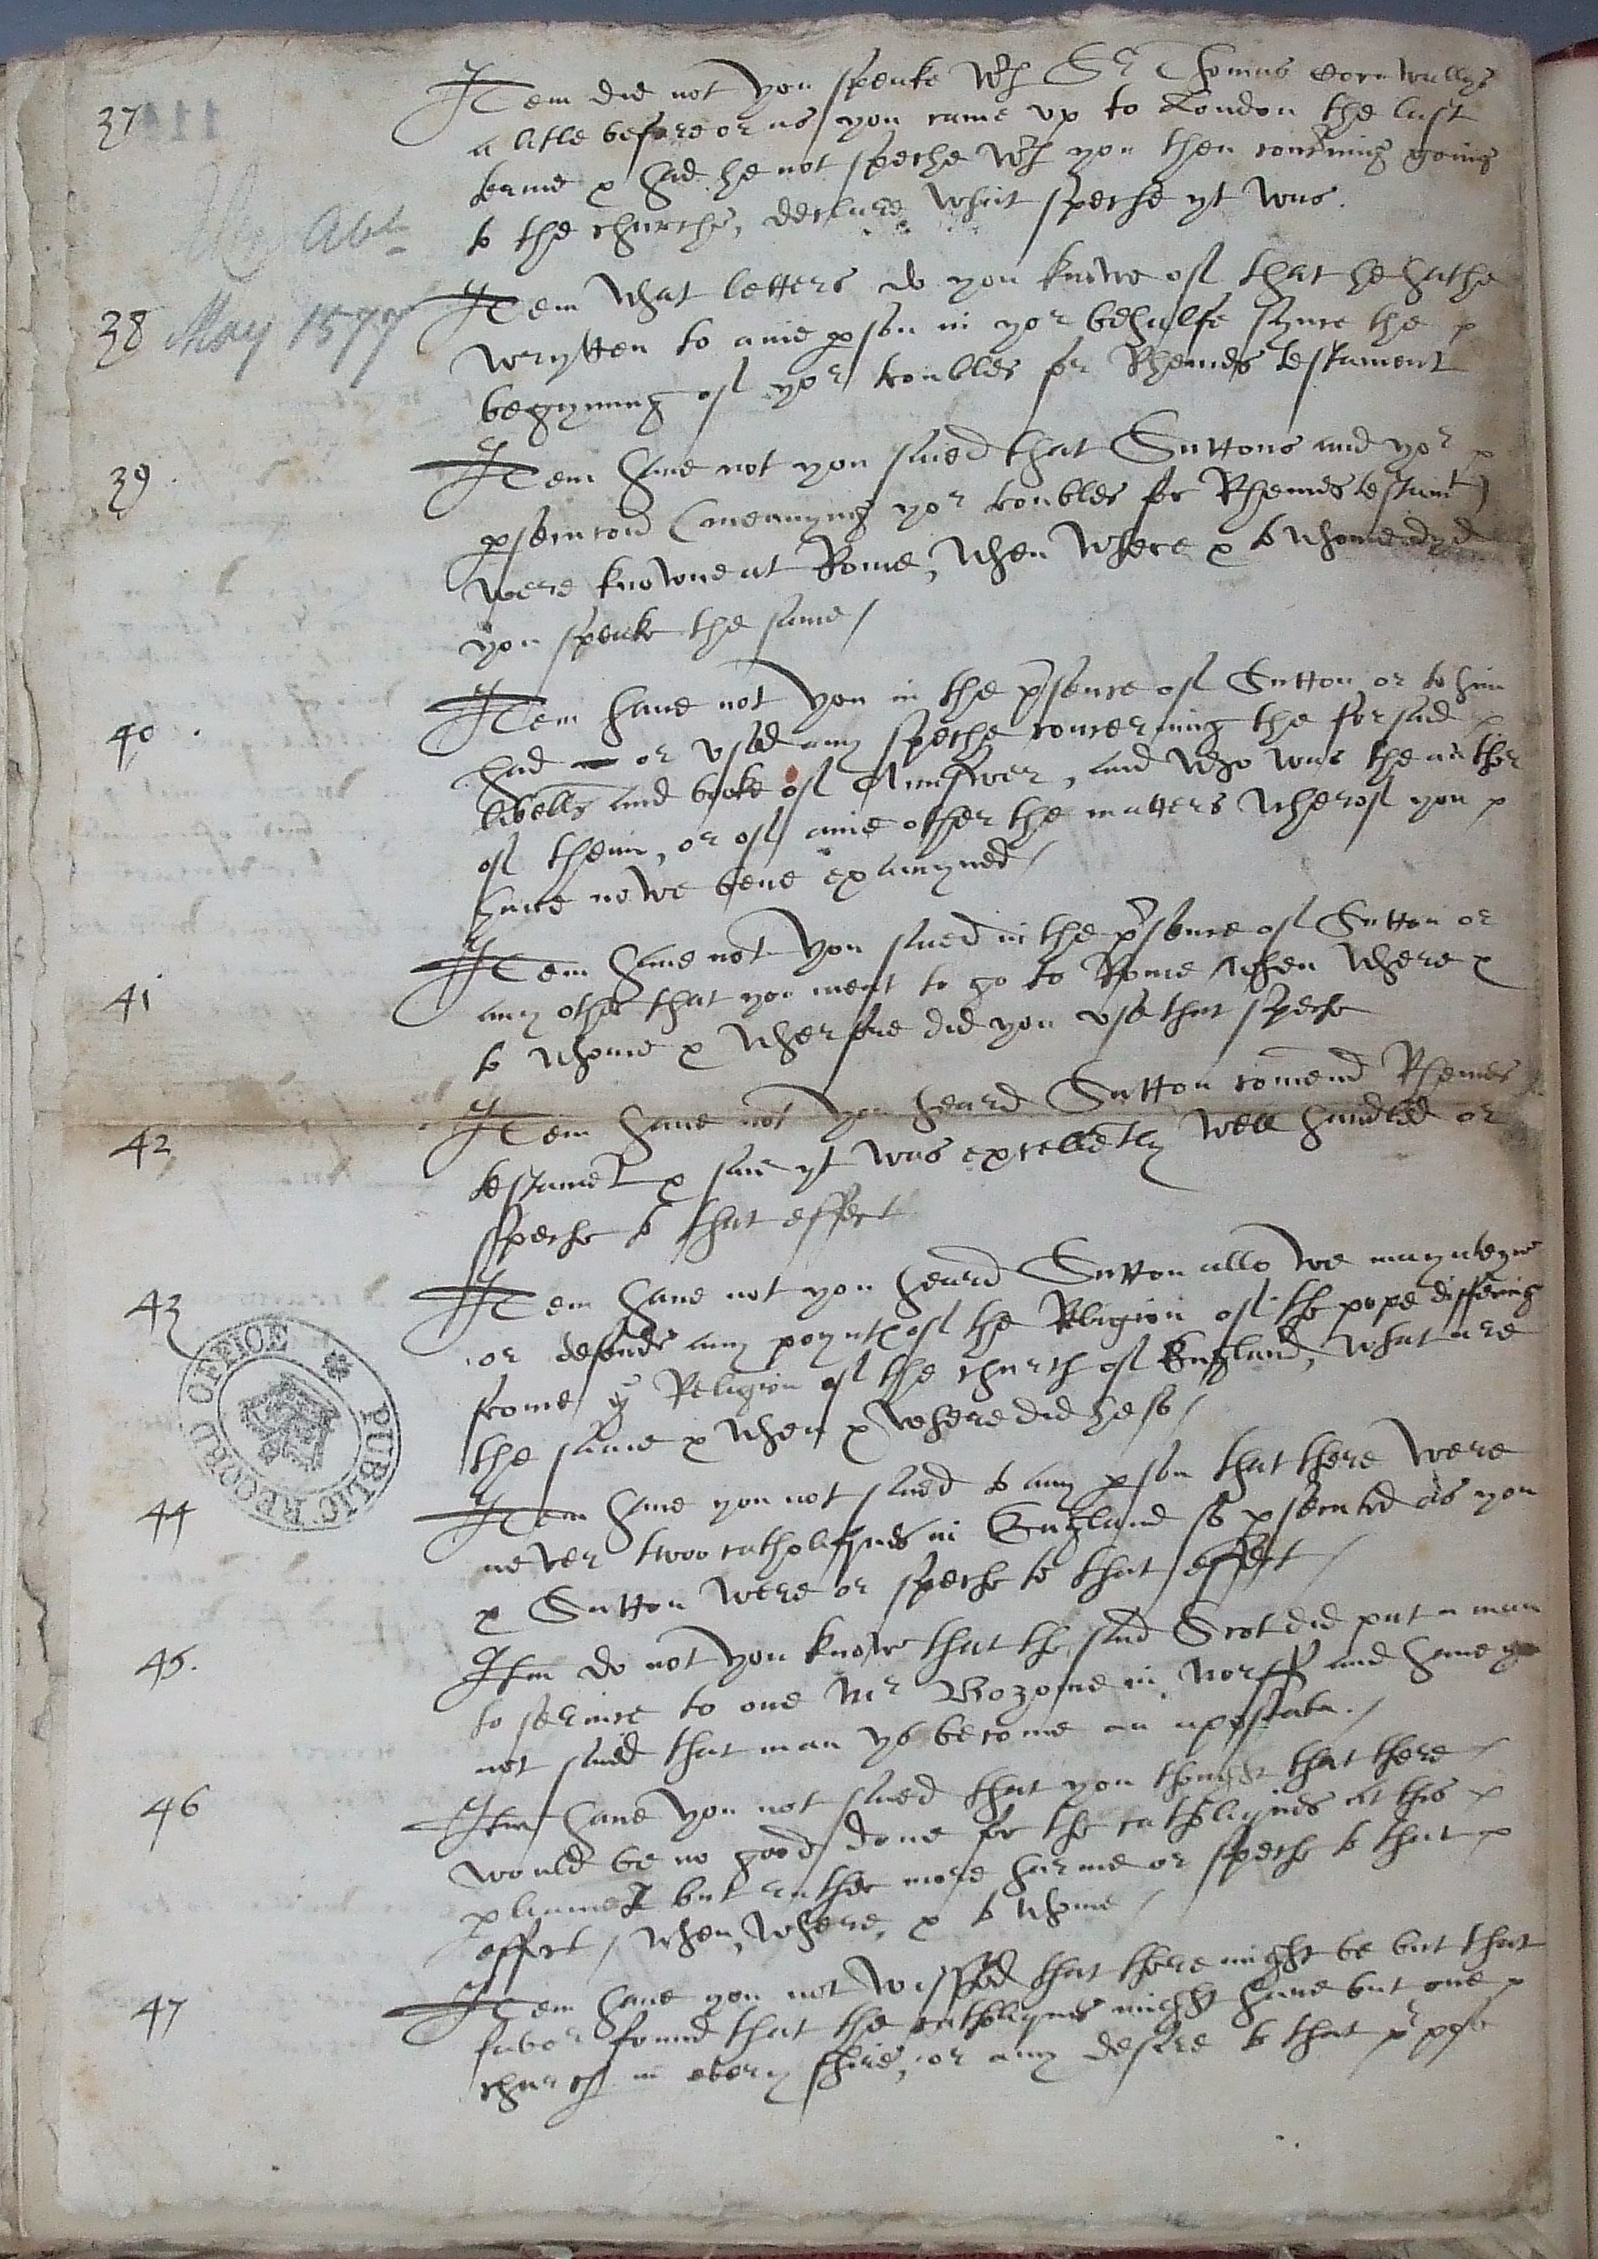 37
Item did not you speake wth Sr Thomas Cornwallys
a litle before or as you came up to London the last
terme & had he not speche wth you then concrning going
to the churche, declare what speche yt was.
38 May 1577
Item what letters do you knowe of that he hathe
wrytten to anie pson in yor behalfe synce the
begynning of yor troubles for Rhemes testament
39.
Item have not you saied that Suttons and yor
psecucon (meanyng yor troubles for Rhemes testamt)
were knowne at Rome, when where & to whome dyd
you speake the same /
40.
Item have not you in the psence of Sutton or to him
had or used any speche concerning the forsaid
libells and booke of Aunswer, and who was the author
of them, or of anie other the matters wherof you
have nowe bene examyned /
41
Item have not you saied in the psence of Sutton or
any other that you ment to go to Rome when where &
to whome & wherfore did you use that speche
42
Item have not you heard Sutton comend Rhemes
testamet & saie yt was excelletly well handled or
speche to that effect
43
Item have not you heard Sutton allowe maynteyne
or defende any poynt of the Religion of the pope differing
frome ye Religion of the church of England, what are
the same & when & where did he so /
PUBLIC RECORD OFFICE
44
Item have you not saied to any pson that there were
never twoo catholiques in England so psecuted as you
& Sutton were or speche to that effect /
45.
Itm do not you know that the said Scot did put a man
to service to one Mr Bozome in Norff and have you
not saied that man ys become an apostata. /
46
Itm have you not saied that you thought that there
would be no good done for the catholiques at this
pliamet but rather more harme or speche to that
effect / when, where, & to whome /
47
Item have you not wisshed that there might be but that
favor found that the catholiques might have but one
church in every shire, or any desire to that prpose